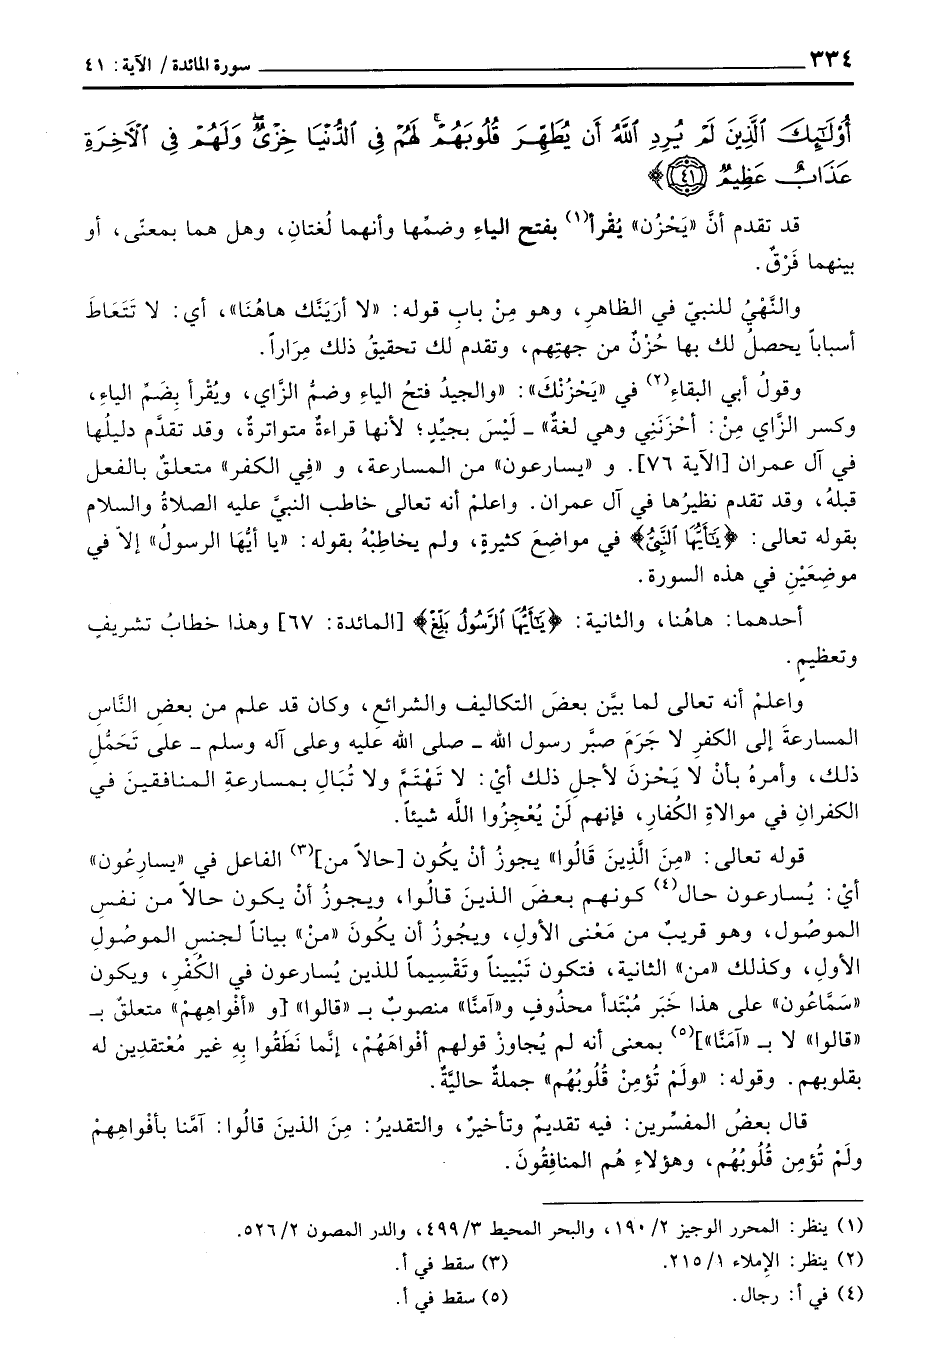 ٣٣٤ سورة المائدة / الآية: ٤١
أُوْلَٰٓئِكَ ٱلَّذِينَ لَمْ يُرِدِ ٱللَّهُ أَن يُطَهِّرَ قُلُوبَهُمْۚ لَهُمْ فِى ٱلدُّنْيَا خِزْىٌۖ وَلَهُمْ فِى ٱلْأَخِرَةِ
عَذَابٌ عَظِيمٌ (٤١)﴾
قد تقدم أنَّ «يَحْزُن» يُقْرأ(١) بفتح الياءِ وضمِّها وأنهما لُغتانِ، وهل هما بمعنًى، أو
بينهما فَرْقٌ.
والنَّهْيُ للنبيِّ في الظاهرِ، وهو مِنْ بابِ قوله: «لا أرَيَنَّك هاهُنَا»، أي: لا تَتَعَاطَ
أسباباً يحصلُ لك بها حُزْنٌ من جهتِهم، وتقدم لك تحقيقُ ذلك مِرَاراً.
وقولُ أبي البقاء(٢) في «يَحْزُنْكَ»: «والجيدُ فتحُ الياءِ وضمُّ الزَّاي، ويُقْرأ بِضَمِّ الياءِ،
وكسر الزَّاي مِنْ: أحْزَنَنِي وهي لغةٌ» ـ لَيْسَ بجيِّدٍ؛ لأنها قراءةٌ متواترةٌ، وقد تقدَّم دليلُها
في آل عمران [الآية ٧٦]. و «يسارعون» من المسارعة، و «فِي الكفر» متعلقٌ بالفعل
قبلهُ، وقد تقدم نظيرُها في آل عمران. واعلمْ أنه تعالى خاطب النبيَّ عليه الصلاةُ والسلام
بقوله تعالى: ﴿يَٰٓأَيُّهَا ٱلنَّبِىُّ﴾ في مواضِعَ كثيرةٍ، ولم يخاطِبْهُ بقوله: «يا أيُّهَا الرسولُ» إلاَّ في
موضِعَيْنِ في هذه السورة.
أحدهما: هاهُنا، والثانية: ﴿يَٰٓأَيُّهَا ٱلرَّسُولُ بَلِّغْ﴾ [المائدة: ٦٧] وهذا خطابُ تشريفٍ
وتعظيمٍ.
واعلمْ أنه تعالى لما بيَّن بعضَ التكاليف والشرائعِ، وكان قد علم من بعضِ النَّاسِ
المسارعةَ إلى الكفرِ لا جَرَمَ صبَّر رسول الله ـ صلى الله عليه وعلى آله وسلم ـ على تَحَمُّلِ
ذلك، وأمرهُ بأنْ لا يَحْزنَ لأجلِ ذلك أيْ: لا تَهْتَمَّ ولا تُبَالِ بمسارعةِ المنافقينَ في
الكفرانِ في موالاةِ الكُفارِ، فإنهم لَنْ يُعْجِزُوا اللَّه شيئاً.
قوله تعالى: «مِنَ الَّذِينَ قَالُوا» يجوزُ أنْ يكُون [حالاً من](٣) الفاعل في «يسارِعُون»
أيْ: يُسارعون حال(٤) كونهم بعضَ الذينَ قالُوا، ويجوزُ أنْ يكون حالاً من نفسِ
الموصُول، وهو قريبٌ من مَعْنى الأولِ، ويجُوزُ أن يكُونَ «منْ» بياناً لجنسِ الموصُولِ
الأولِ، وكذلك «من» الثانية، فتكون تَبْييناً وتَقْسِيماً للذين يُسارعون في الكُفْرِ، ويكون
«سَمَّاعُون» على هذا خَبَر مُبْتَدأ محذُوفٍ و«آمنَّا» منصوبٌ بـ «قالوا» [و «أفْواهِهمْ» متعلقٌ بـ
«قالوا» لا بـ «آمَنَّا»](٥) بمعنى أنه لم يُجاوزْ قولهم أفْواهَهُمْ، إنَّما نَطَقُوا بِهِ غير مُعْتقدِين له
بقلوبهم. وقوله: «ولَمْ تُؤمِنْ قُلُوبُهُم» جملةٌ حاليَّةٌ.
قال بعضُ المفسِّرين: فيه تقديمٌ وتأخيرٌ، والتقديرُ: مِنَ الذينَ قالُوا: آمنَّا بأفْواهِهمْ
ولَمْ تُؤمِن قُلُوبُهُم، وهؤلاءِ هُم المنافِقُونَ.
(١) ينظر: المحرر الوجيز ٢/ ١٩٠، والبحر المحيط ٣/ ٤٩٩، والدر المصون ٢/ ٥٢٦.
(٢) ينظر: الإملاء ١/ ٢١٥. (٣) سقط في أ.
(٤) في أ: رجال. (٥) سقط في أ.